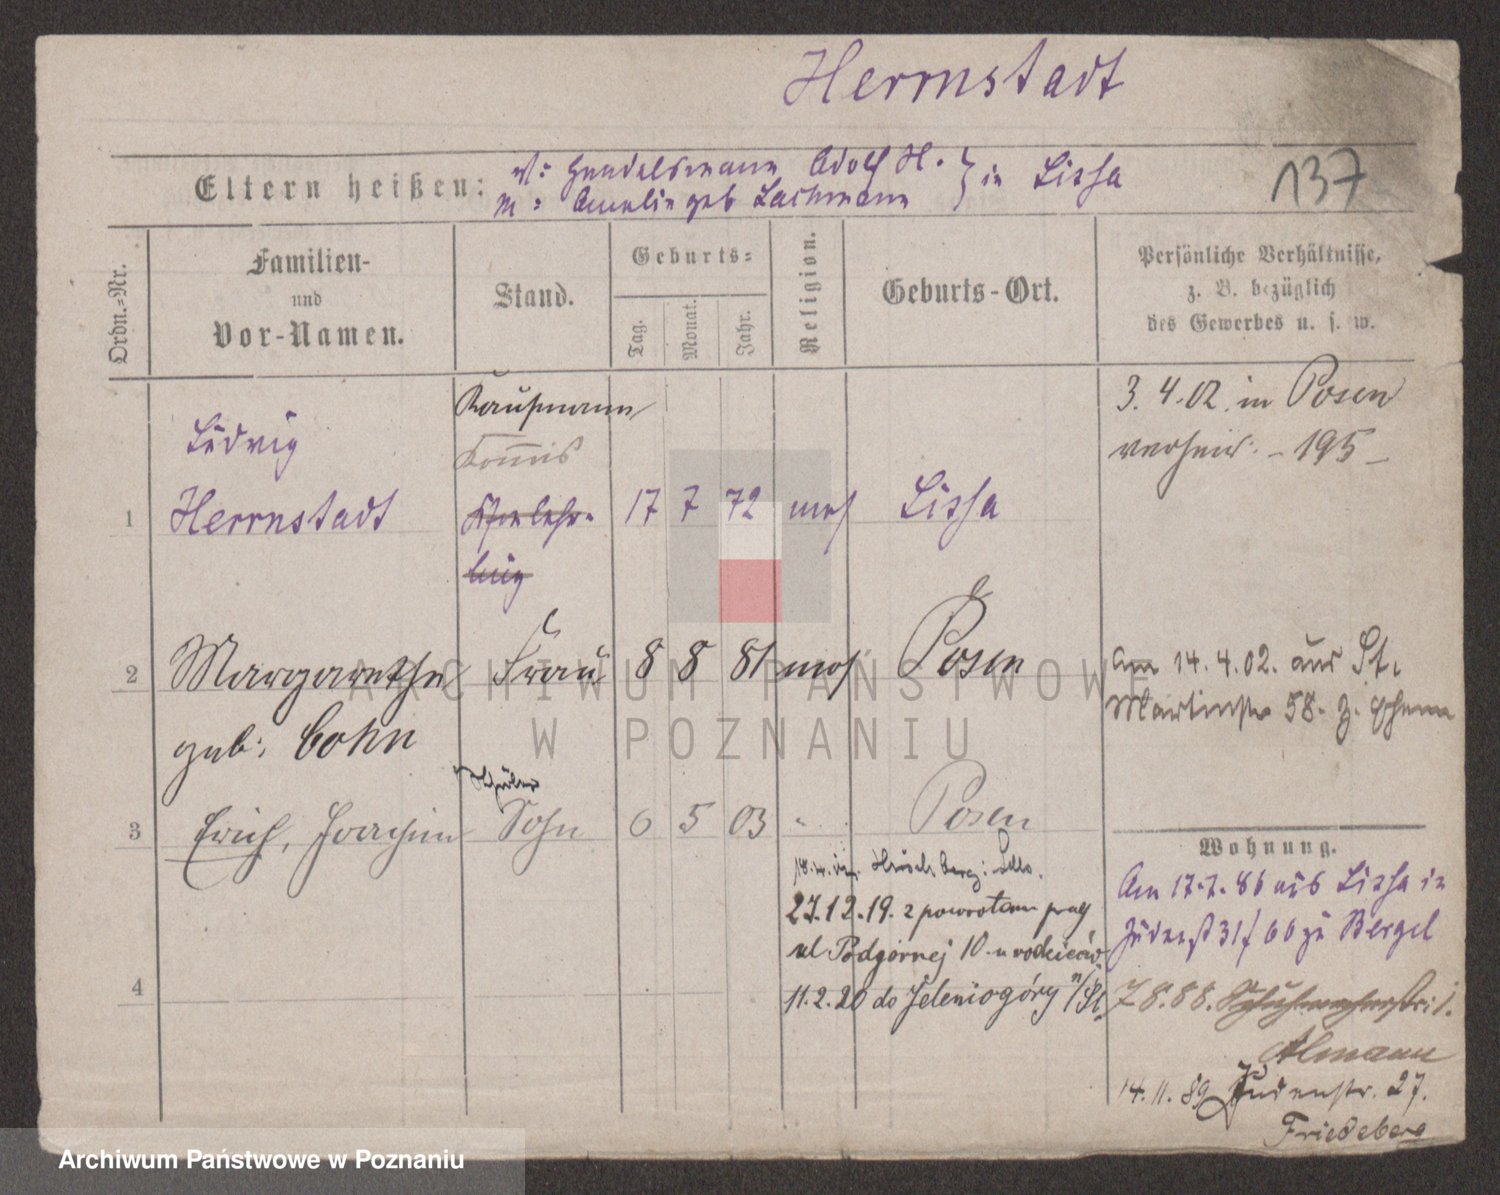 Herrnstadt
Eltern heißen:
V: Handelsmann Adolf H. } in Lissa
M: Amalie geb Lachmann
137
Ordn.=Nr.
Familien-
und
Vor-Namen.
Stand.
Geburts=
Tag.
Monat.
Jahr.
Religion.
Geburts-Ort.
Persönliche Verhältnisse,
z. B. bezüglich
des Gewerbes u. s. w.
Kaufmann
Kommis
3. 4. 02. in Posen
verheir. - 195 -
Ludwig
1 Herrnstadt
Kfmlehr=
ling
17 7 72 mos Lissa
2 Margarethe Frau 8 8 81 mos Posen
geb. Cohn
Am 14. 4. 02. aus St.
Martinstr 58. z. Ehem
Schüler
3 Erich, Joachim Sohn 6 5 03 " Posen
Wohnung.
Hirschberg: Schles.
27.12.19. z powrotem przy
ul Podgórnej 10 u rodziców
4 11.2.20 do Jeleniogóry n/Śl.
Am 17.7.86 aus Lissa in
Judenstr 31/ 66 zu Bergel
7 8. 88. Schuhmacherstr. 1.
Almann
14. 11. 89 Judenstr. 27.
Friedeberg
ARCHIWUM PAŃSTWOWE
W POZNANIU
Archiwum Państwowe w Poznaniu